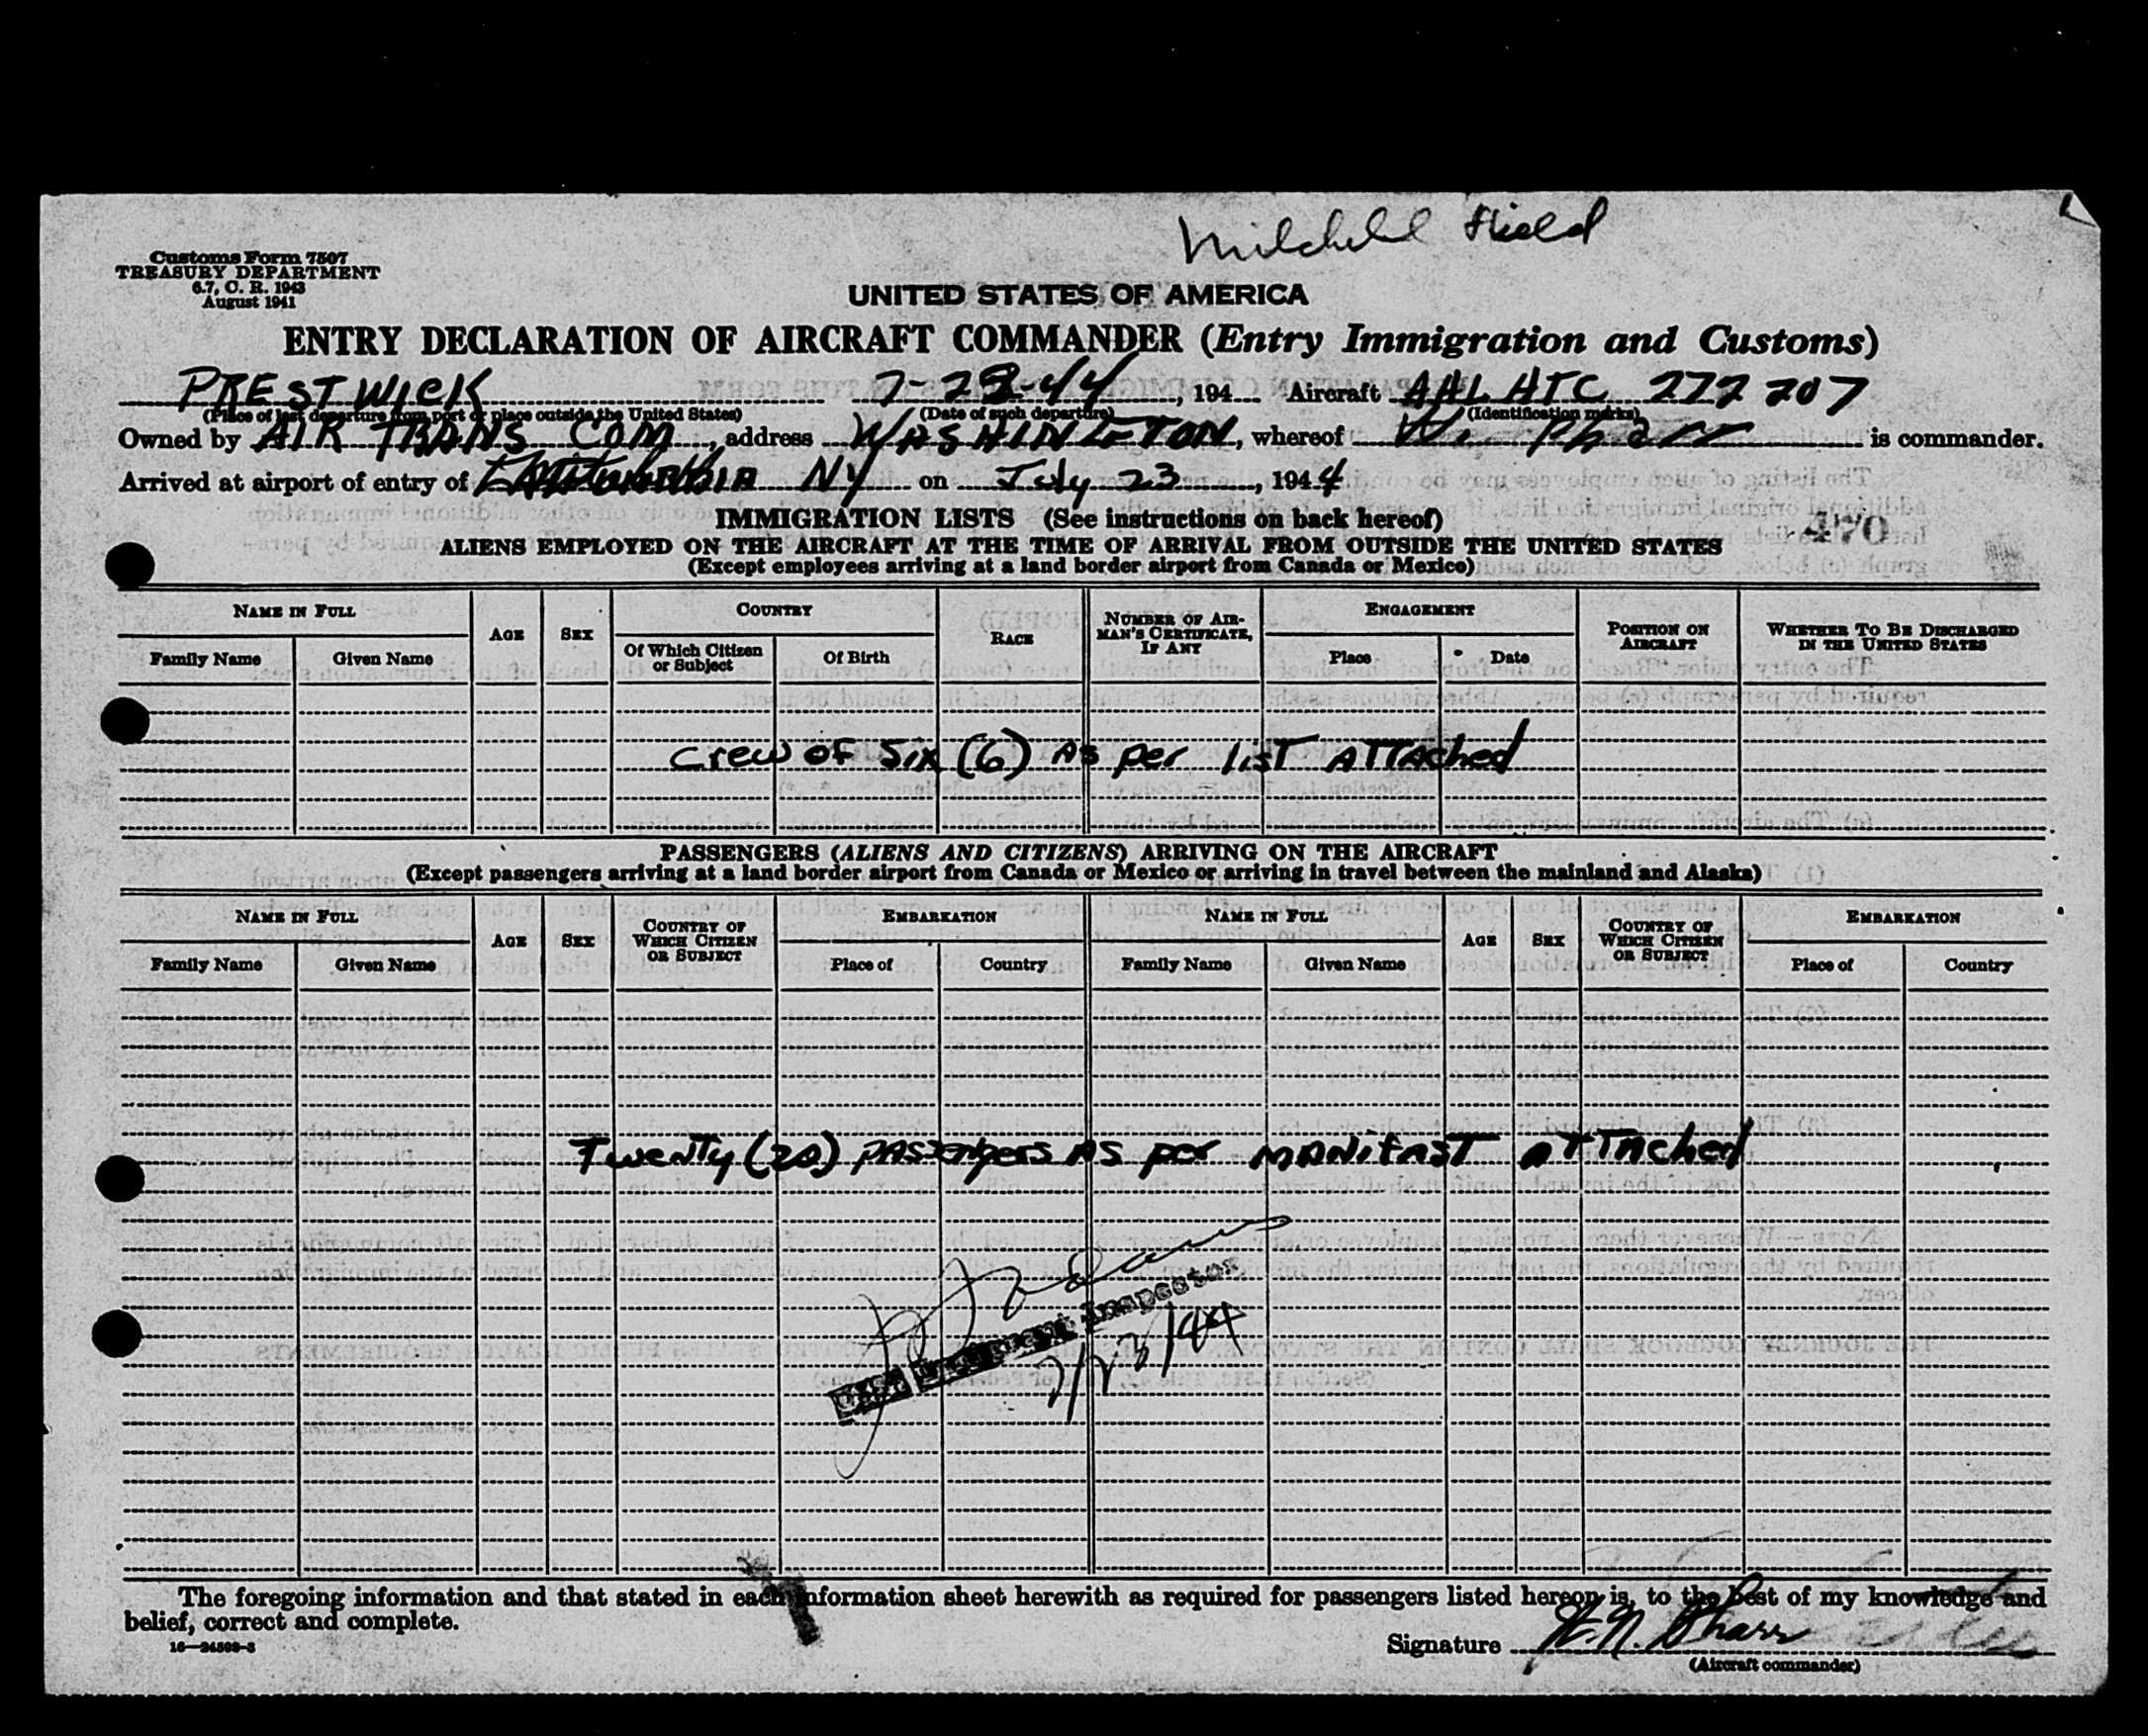 Mitchell Field
Customs Form 7507
TREASURY DEPARTMENT
6.7, C. R. 1943
August 1941
UNITED STATES OF AMERICA
ENTRY DECLARATION OF AIRCRAFT COMMANDER (Entry Immigration and Customs)
PRESTWICK 7-23-44, 194 Aircraft AHL HTC 272207
(Place of last departure from port or place outside the United States) (Date of such departure) (Identification marks)
Owned by AIR TRANS COM, address WASHINGTON, whereof W. Pharr is commander.
Arrived at airport of entry of NY on July 23, 1944
IMMIGRATION LISTS (See instructions on back hereof)
470
ALIENS EMPLOYED ON THE AIRCRAFT AT THE TIME OF ARRIVAL FROM OUTSIDE THE UNITED STATES
(Except employees arriving at a land border airport from Canada or Mexico)
NAME IN FULL
Family Name Given Name
AGE
SEX
COUNTRY
Of Which Citizen or Subject
Of Birth
RACE
NUMBER OF AIRMAN'S CERTIFICATE, IF ANY
ENGAGEMENT
Place Date
POSITION ON AIRCRAFT
WHETHER TO BE DISCHARGED IN THE UNITED STATES
Crew of Six (6) As per list ATTAched
PASSENGERS (ALIENS AND CITIZENS) ARRIVING ON THE AIRCRAFT
(Except passengers arriving at a land border airport from Canada or Mexico or arriving in travel between the mainland and Alaska)
NAME IN FULL
Family Name Given Name
AGE
SEX
COUNTRY OF WHICH CITIZEN OR SUBJECT
EMBARKATION
Place of Country
NAME IN FULL
Family Name Given Name
AGE
SEX
COUNTRY OF WHICH CITIZEN OR SUBJECT
EMBARKATION
Place of Country
Twenty (20) PASSengers AS per MANifAST ATTAched
Inspector
7/23/44
The foregoing information and that stated in each information sheet herewith as required for passengers listed hereon is, to the best of my knowledge and
belief, correct and complete.
16—24598-3
Signature W. N. Pharr
(Aircraft commander)